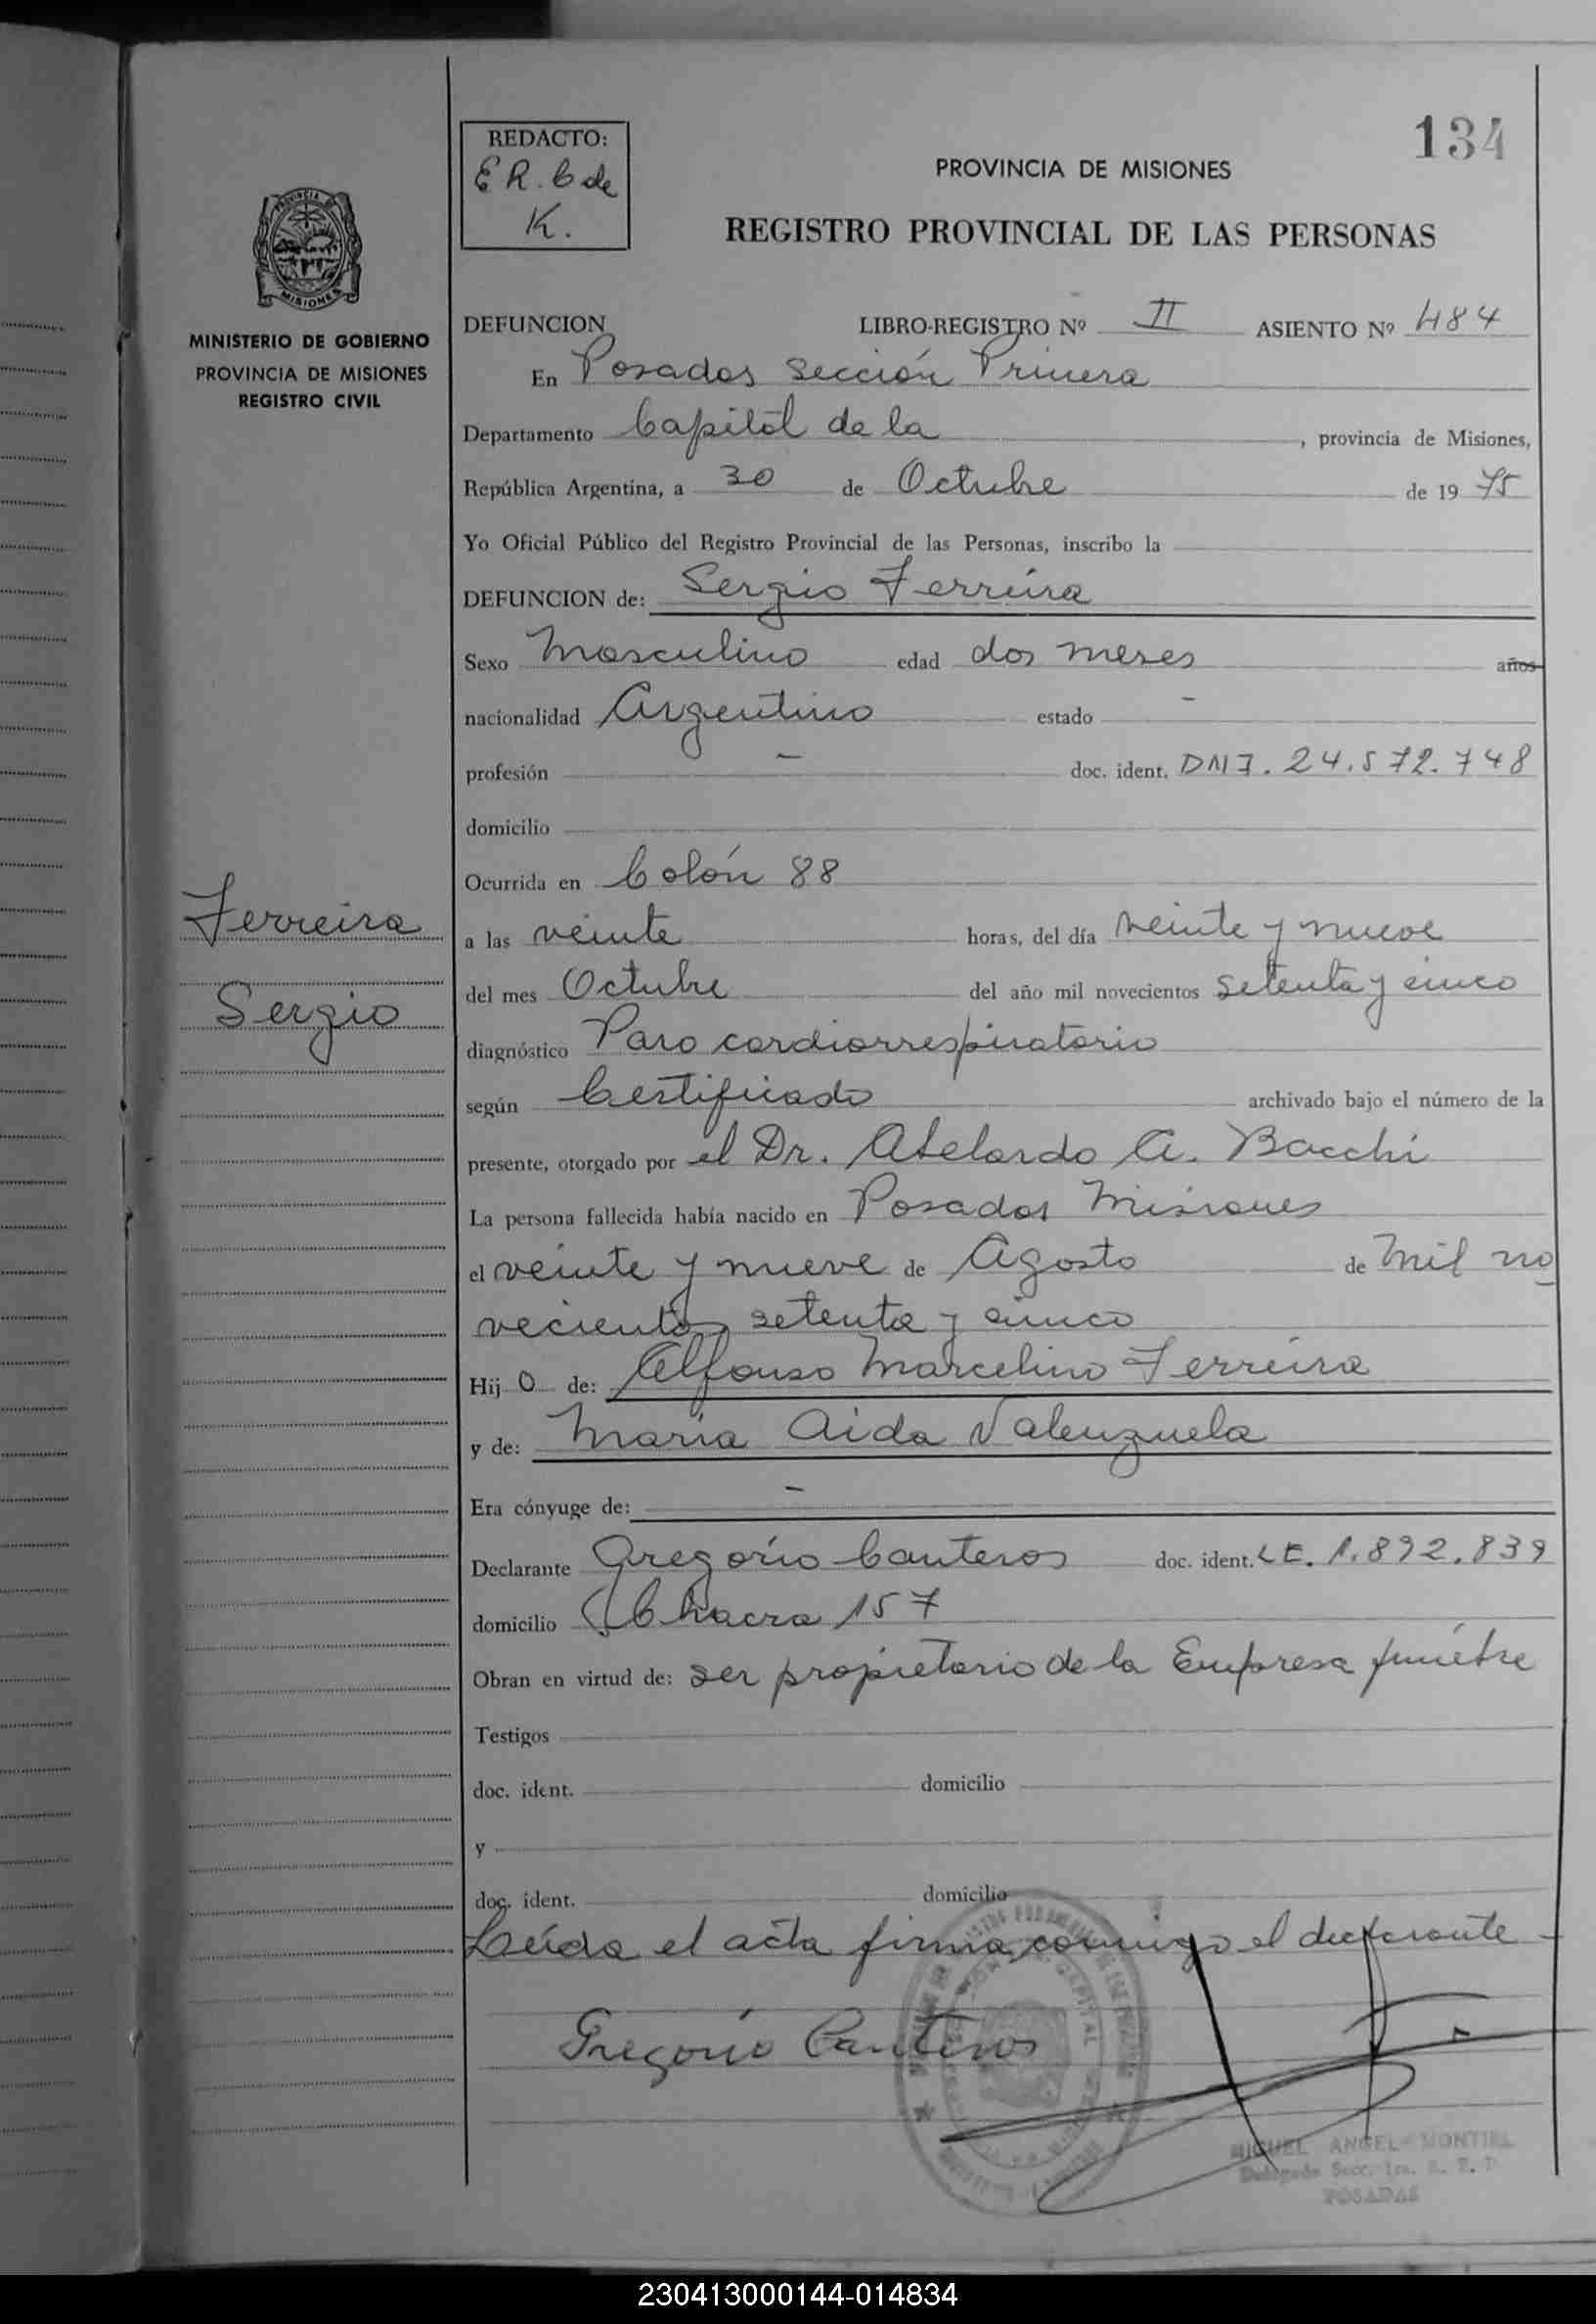 134
REDACTO:
E R. C de
K.
PROVINCIA DE MISIONES
REGISTRO PROVINCIAL DE LAS PERSONAS
PROVINCIA DE
MISIONES
MINISTERIO DE GOBIERNO
PROVINCIA DE MISIONES
REGISTRO CIVIL
DEFUNCION LIBRO-REGISTRO Nº II ASIENTO Nº 484
En Posadas Sección Primera
Departamento Capital de la , provincia de Misiones,
República Argentina, a 30 de Octubre de 19 75
Yo Oficial Público del Registro Provincial de las Personas, inscribo la
DEFUNCION de: Sergio Ferreira
Sexo Masculino edad dos meses años
nacionalidad Argentino estado -
profesión - doc. ident. DNI. 24.572.748
domicilio
Ocurrida en Colón 88
Ferreira
a las veinte horas, del día veinte y nueve
del mes Octubre del año mil novecientos setenta y cinco
Sergio
diagnóstico Paro cardiorrespiratorio
según Certificado archivado bajo el número de la
presente, otorgado por el Dr. Abelardo A. Bacchi
La persona fallecida había nacido en Posadas Misiones
el veinte y nueve de Agosto de mil no
vecientos setenta y cinco
Hij o de: Alfonso Marcelino Ferreira
y de: María Aida Valenzuela
Era cónyuge de: -
Declarante Gregorio Canteros doc. ident. LE. 1.892.839
domicilio Chacra 157
Obran en virtud de: ser propietario de la Empresa fúnebre
Testigos
doc. ident. domicilio
y
doc. ident. domicilio
Leída el acta firma conmigo el declarante -
Gregorio Canteros
MIGUEL ANGEL MONTIEL
Delegado Secc. 1ra.
POSADAS
230413000144-014834